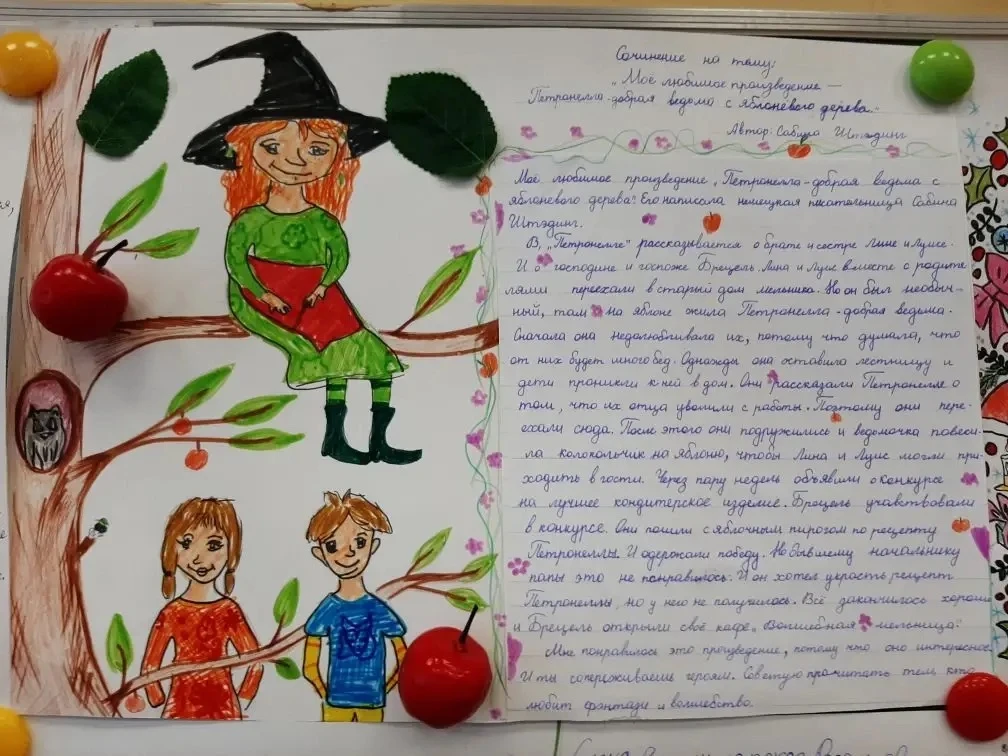 Сочинение на тему:
„Моё любимое произведение —
Петронелла-добрая ведьма с яблоневого дерева."
Автор: Сабина Штэдинг
Моё любимое произведение „Петронелла-добрая ведьма с
яблоневого дерева". Его написала немецкая писательница Сабина
Штэдинг.
В „Петронелле" рассказывается о брате и сестре Лине и Луисе.
И о господине и госпоже Брецель Лина и Луис вместе с родите
лями переехали в старый дом мельника. Но он был необыч-
ный, там на яблоне жила Петронелла-добрая ведьма.
Сначала она недолюбливала их, потому что думала, что
от них будет много бед. Однажды она оставила лестницу и
дети проникли к ней в дом. Они рассказали Петронелле о
том, что их отца уволили с работы. Поэтому они пере-
ехали сюда. После этого они подружились и ведьмочка повеси-
ла колокольчик на яблоню, чтобы Лина и Луис могли при-
ходить в гости. Через пару недель объявили о конкурсе
на лучшее кондитерское изделие. Брецель учавствовали
в конкурсе. Они пошли с яблочным пирогом по рецепту
Петронеллы. И одержали победу. Но бывшему начальнику
папы это не понравилось. И он хотел украсть рецепт
Петронеллы, но у него не получилось. Всё закончилось хорошо
и Брецель открыли своё кафе „Волшебная мельница"
Мне понравилось это произведение, потому что оно интересное.
И ты сопереживаешь героям. Советую прочитать тем, кто
любит фэнтази и волшебство.